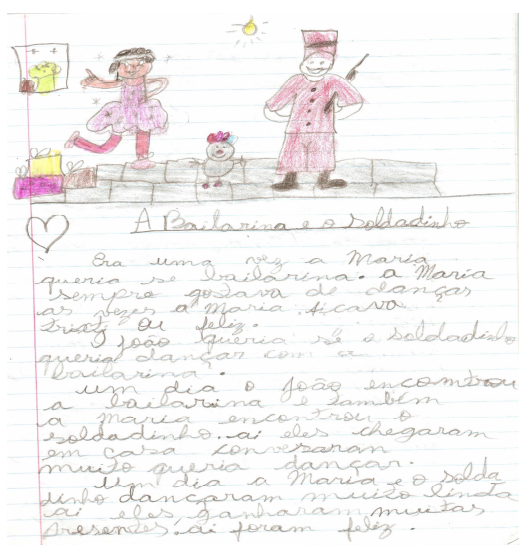 A Bailarina e o Soldadinho
Era uma vez a Maria
queria se bailarina. a Maria
sempre gostava de danças
as vezes a Maria ficava
trist ou feliz.
O joão queria sé o soldadinho
queria dançar com a
bailarina.
um dia o João encomtrou
a bailarina e também
a Maria encontrou o
soldadinho. ai eles chegaram
em casa conversaran
muito queria dançar.
Um dia a Maria e o solda
dinho dançaram muito linda
ai eles ganharam muitas
presentes. ai foram feliz.